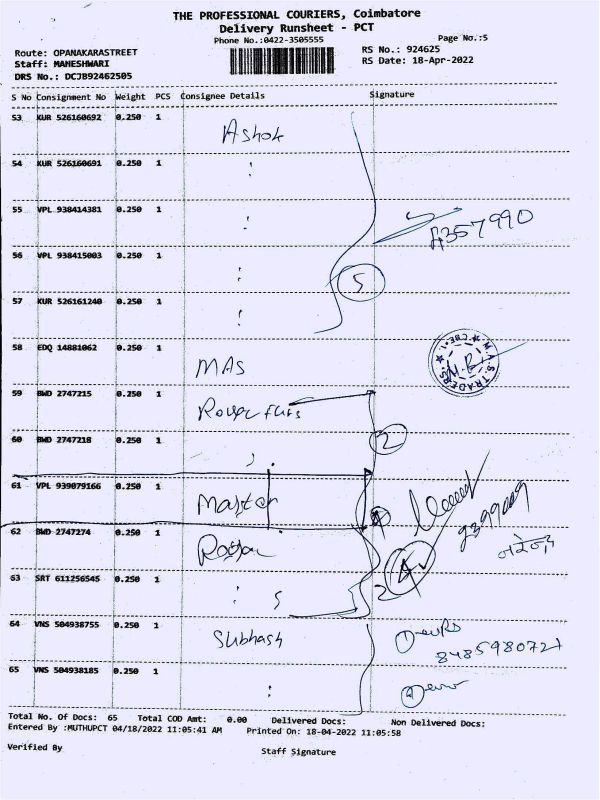 THE PROFESSIONAL COURIERS, Coimbatore
Delivery Runsheet - PCT
Phone No.:0422-3505555
Page No.:5
Route: OPANAKARASTREET
RS No.: 924625
Staff: MANESHWARI
RS Date: 18-Apr-2022
DRS No.: DCJB92462505
S No Consignment No Weight PCS Consignee Details Signature
53 KUR 526160692 0.250 1
Ashok
54 KUR 526160691 0.250 1
55 VPL 938414381 0.250 1
A357990
56 VPL 938415003 0.250 1
5
57 KUR 526161240 0.250 1
58 EDQ 14881062 0.250 1
MAS
M.A.S. TRADERS CBE-1
59 BWD 2747215 0.250 1
60 BWD 2747218 0.250 1
2
61 VPL 939079166 0.250 1
Master
62 BWD 2747274 0.250 1
63 SRT 611256545 0.250 1
64 VNS 504938755 0.250 1
Subhash
8485980721
65 VNS 504938185 0.250 1
Total No. Of Docs: 65 Total COD Amt: 0.00 Delivered Docs: Non Delivered Docs:
Entered By :MUTHUPCT 04/18/2022 11:05:41 AM Printed On: 18-04-2022 11:05:58
Verified By
Staff Signature